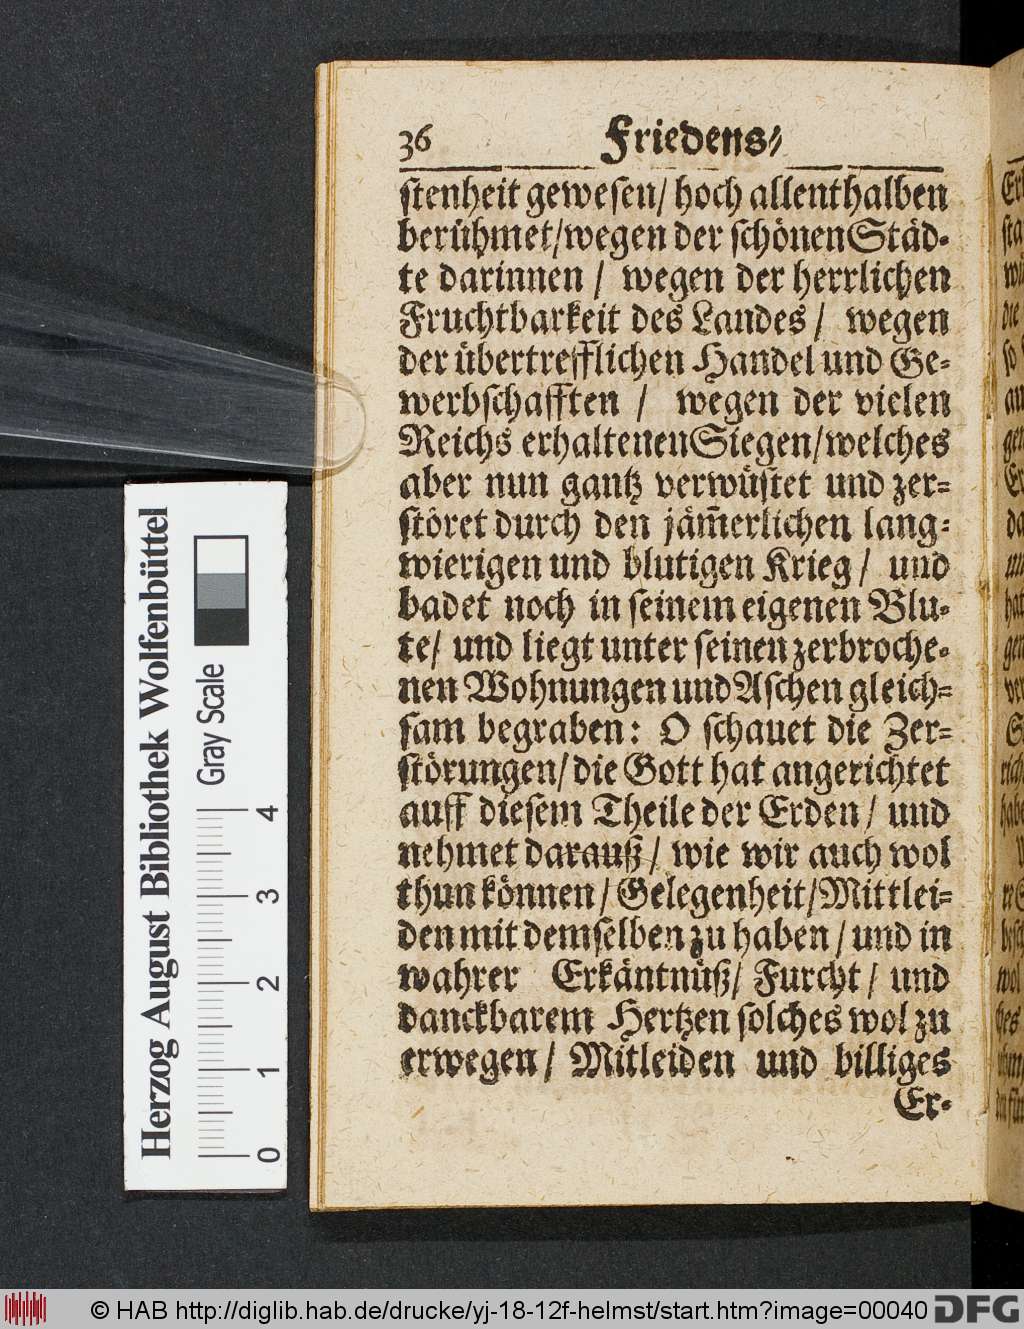 36 Friedens/
stenheit gewesen/ hoch allenthalben
berühmet/wegen der schönen Städ-
te darinnen / wegen der herrlichen
Fruchtbarkeit des Landes / wegen
der übertrefflichen Handel und Ge-
werbschafften / wegen der vielen
Reichs erhaltenen Siegen/welches
aber nun gantz verwüstet und zer-
störet durch den jäm̃erlichen lang-
wierigen und blutigen Krieg / und
badet noch in seinem eigenen Blu-
te/ und liegt unter seinen zerbroche-
nen Wohnungen und Aschen gleich-
sam begraben: O schauet die Zer-
störungen/ die Gott hat angerichtet
auff diesem Theile der Erden / und
nehmet darauß / wie wir auch wol
thun können / Gelegenheit/Mittlei-
den mit demselben zu haben / und in
wahrer Erkäntnüß/ Furcht / und
danckbarem Hertzen solches wol zu
erwegen / Mitleiden und billiges
Er-
Herzog August Bibliothek Wolfenbüttel
Gray Scale
0 1 2 3 4
© HAB http://diglib.hab.de/drucke/yj-18-12f-helmst/start.htm?image=00040 DFG